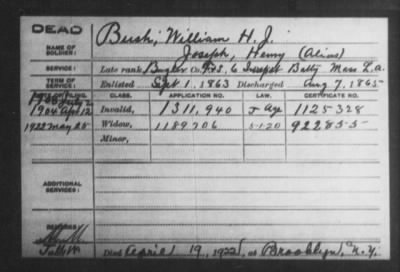 DEAD
NAME OF SOLDIER: Bush, William H. J.
Joseph, Henry (Alias)
SERVICE: Late rank Bugler Co. 6 Batty Mass L. a.
TERM OF SERVICE: Enlisted Sept 1, 1863 Discharged Aug 7, 1865
DATE OF FILING. CLASS. APPLICATION NO. LAW. CERTIFICATE NO.
1904 Apl 12 Invalid, 1311,940 Age 1125328
1922 May 25 Widow, 1189706 5-1-20 922855
Minor,
ADDITIONAL SERVICES:
REMARKS:
Died April 19, 1922, at Brooklyn, N.Y.